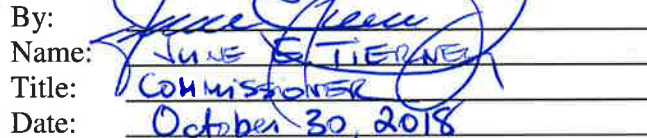 By:
Name: JUNE E. TIERNEY
Title: COMMISSIONER
Date: October 30, 2018